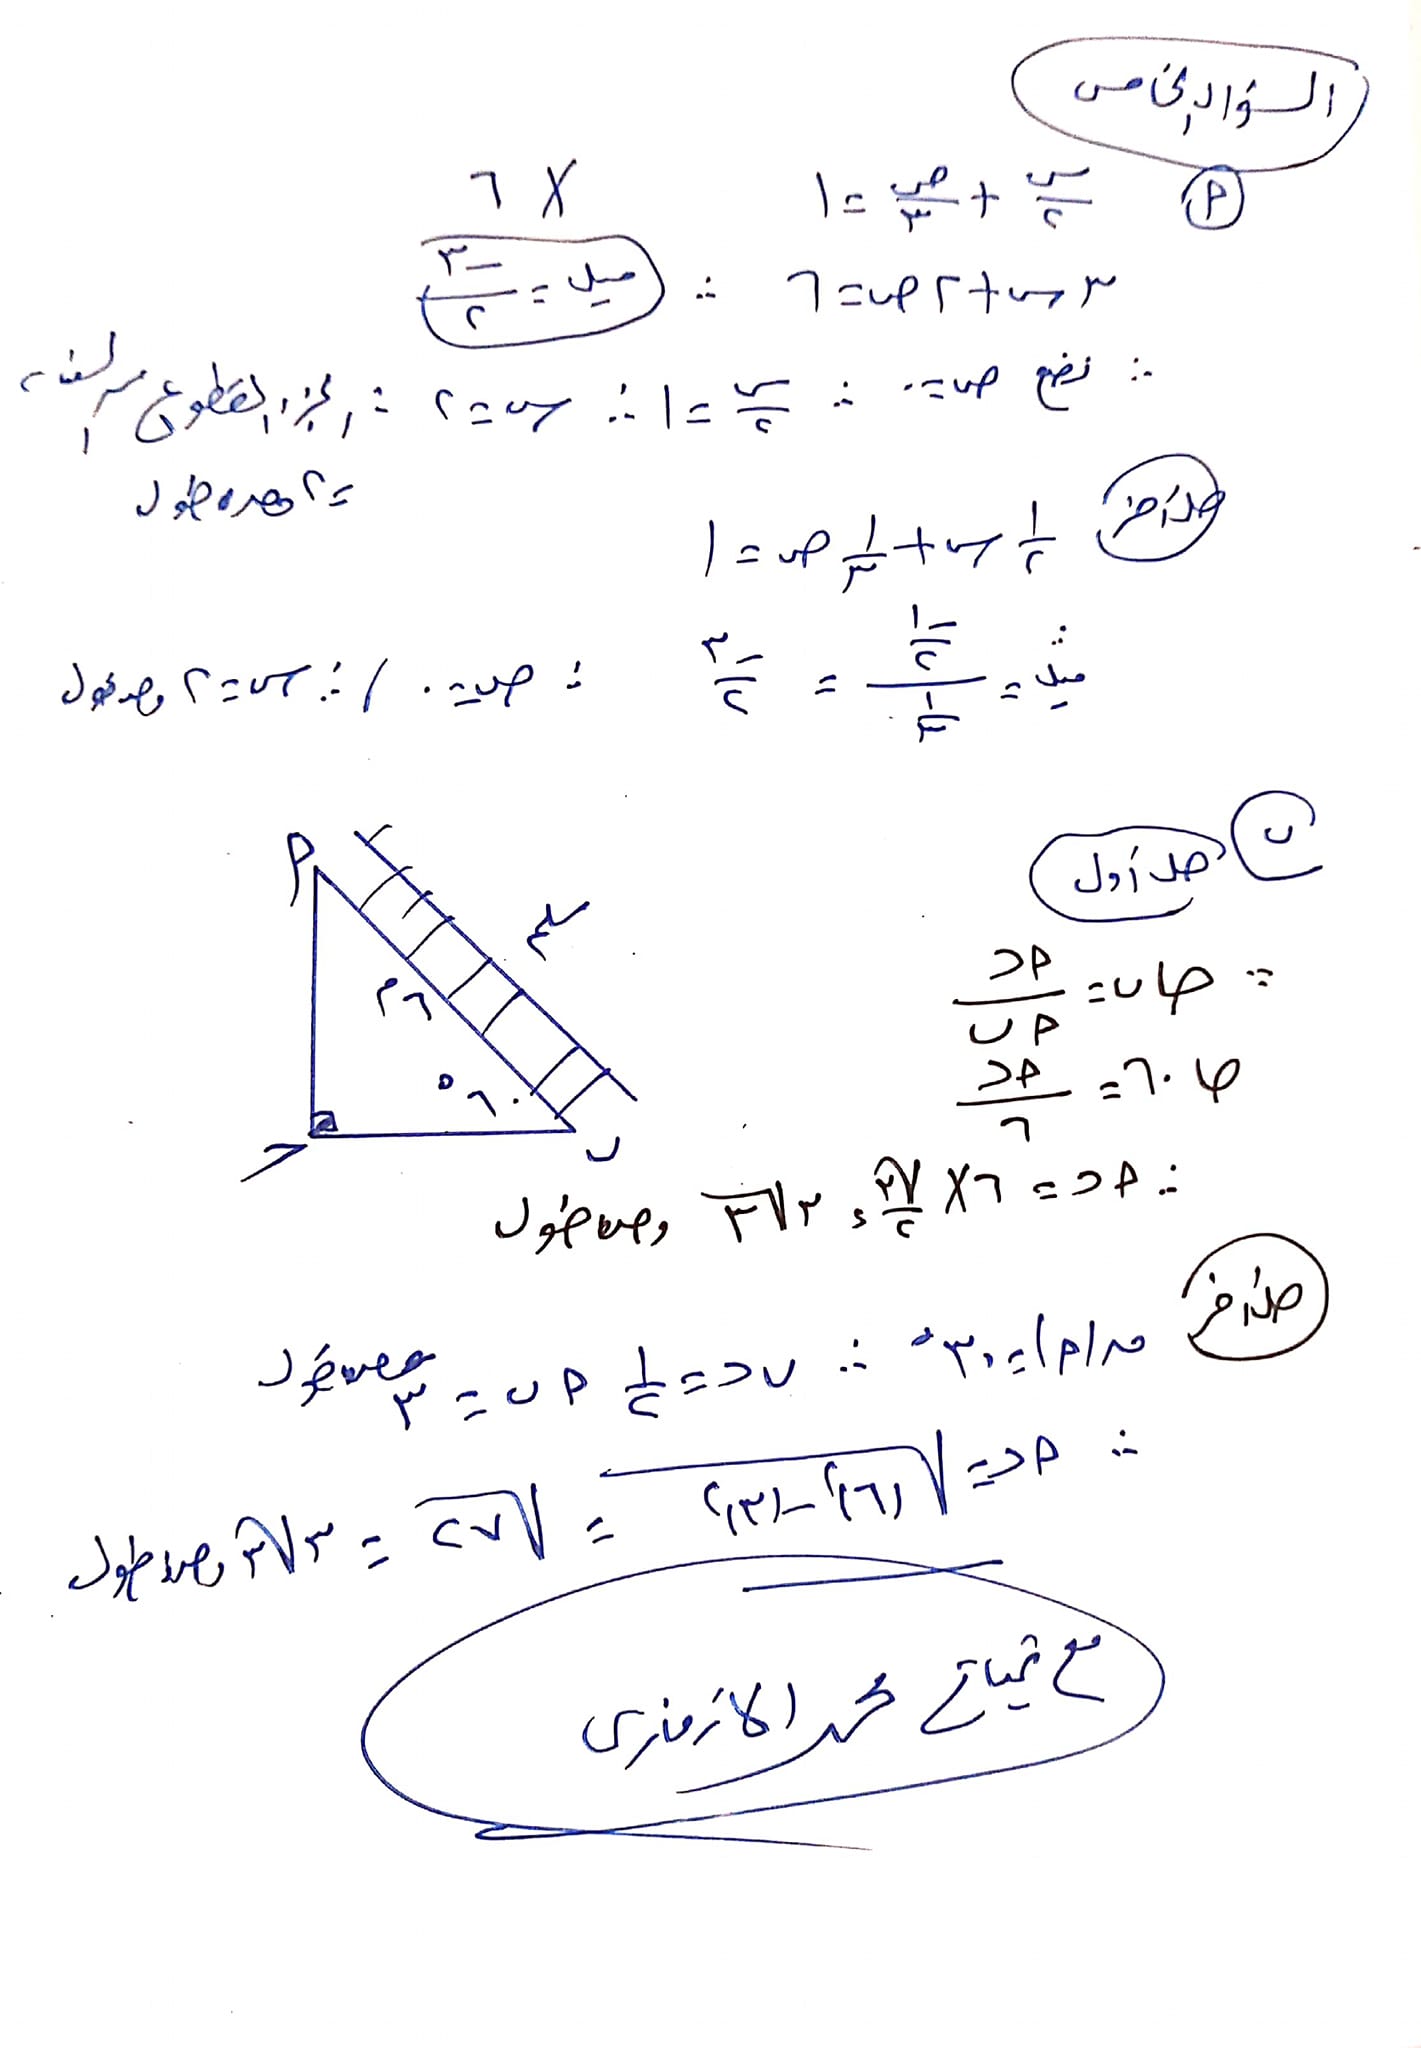 السؤال الخامس
أ س/٢ + ص/٣ = ١ × ٦
٣س + ٢ص = ٦ ∴ ميل = -٣/٢
∴ نضع ص = ٠ ∴ س/٢ = ١ ∴ س = ٢ ∴ الجزء المقطوع من السينات
= ٢ وحده طول
حل آخر ١/٢ س + ١/٣ ص = ١
∵ ميل = (-١/٢)/(١/٣) = -٣/٢ ∵ ص = ٠ ∴ س = ٢ وحده طول
ب
حل أول
أ
سلم
٦م
٦٠°
ح
ب
∵ حا ب = أح/أب
حا ٦٠ = أح/٦
∴ أح = ٦ × √٣/٢ = ٣√٣ وحده طول
حل آخر
ق(أ) = ٣٠° ∴ ب ح = ١/٢ أ ب = ٣ وحده طول
∴ أح = √((٦)² - (٣)²) = √٢٧ = ٣√٣ وحده طول
مع تحياتي محمد الأزمازي